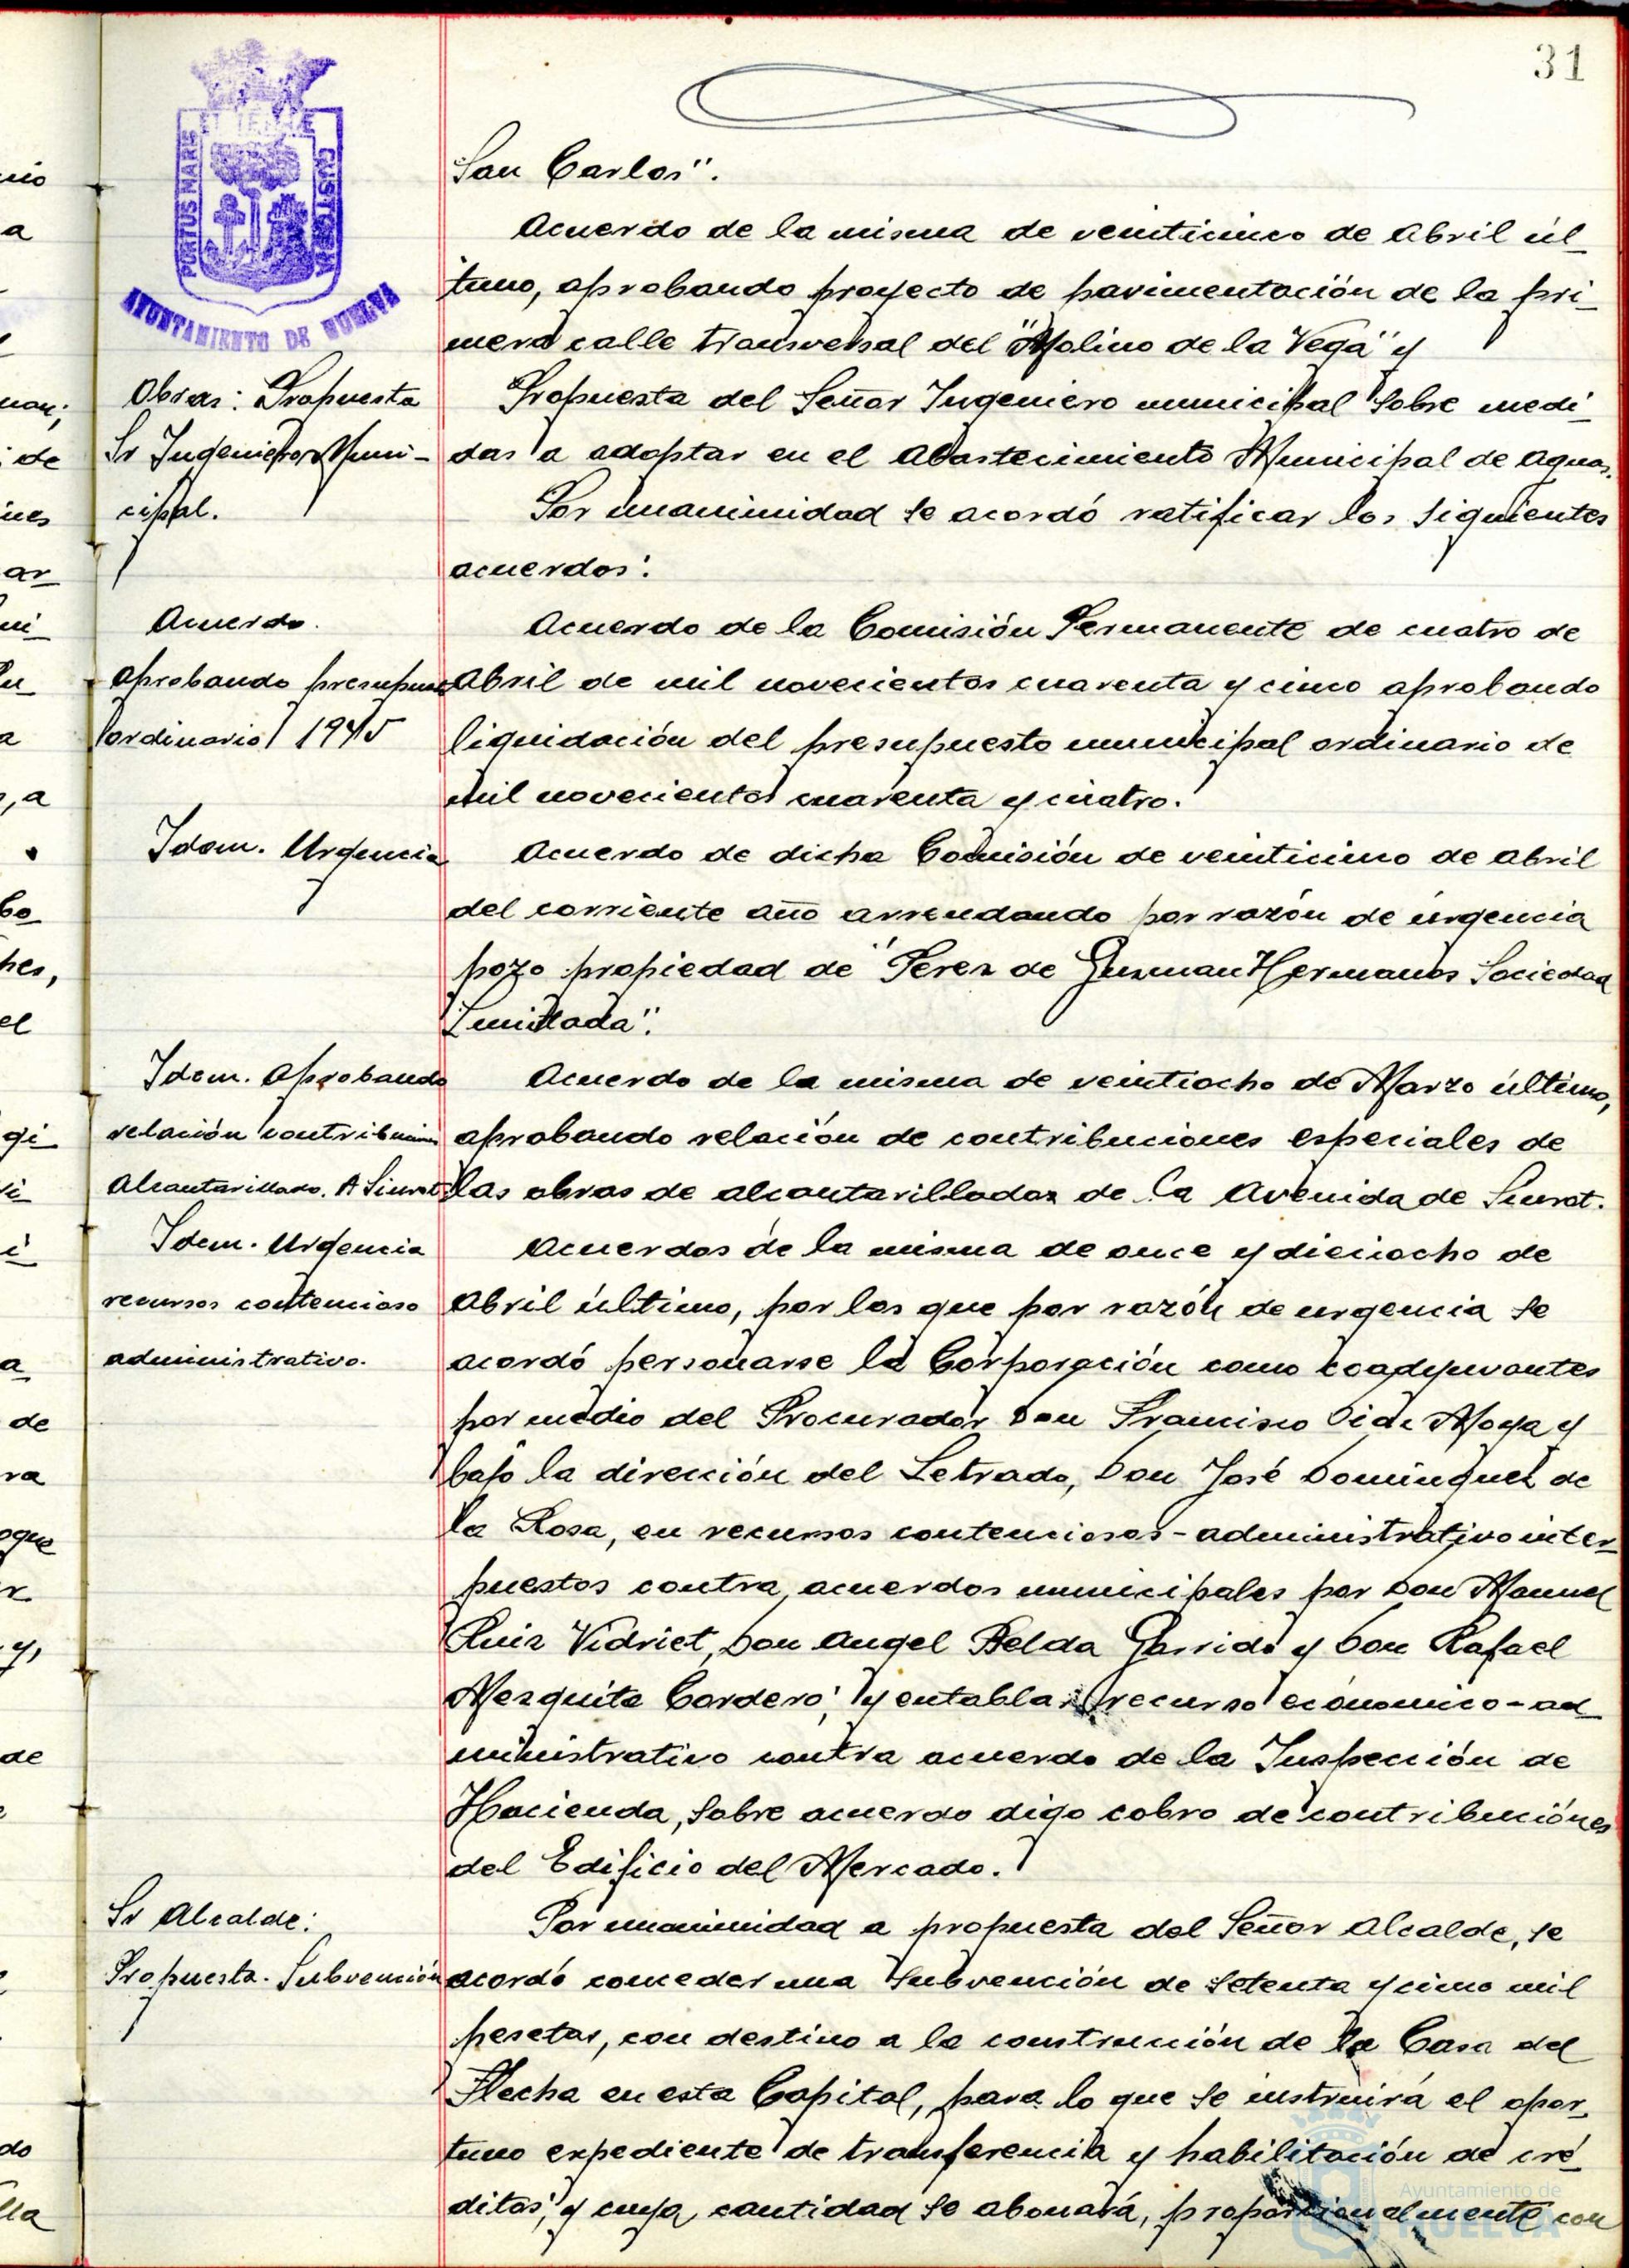 31
PORTUS MARIS
ET TERRAE
CUSTODIA
AYUNTAMIENTO DE HUELVA
San Carlos".
Acuerdo de la misma de veinticinco de Abril úl-
timo, aprobando proyecto de pavimentación de la pri-
mera calle transversal del "Molino de la Vega" y
Obras: Propuesta
Sr Ingeniero Muni-
cipal.
Propuesta del Señor Ingeniero municipal sobre medi-
das a adoptar en el Abastecimiento Municipal de Aguas.
Por unanimidad se acordó ratificar los siguientes
acuerdos:
Acuerdo.
aprobando presupues
ordinario 1945
Acuerdo de la Comisión Permanente de cuatro de
Abril de mil novecientos cuarenta y cinco aprobando
liquidación del presupuesto municipal ordinario de
mil novecientos cuarenta y cuatro.
Idem. Urgencia
Acuerdo de dicha Comisión de veinticinco de Abril
del corriente año arrendando por razón de urgencia
pozo propiedad de "Perez de Guzman Hermanos Sociedad
Limitada".
Idem. Aprobando
relación contribucion
Alcantarillado. A Siurot
Acuerdo de la misma de veintiocho de Marzo último,
aprobando relación de contribuciones especiales de
las obras de alcantarillados de la Avenida de Siurot.
Idem. Urgencia
recursos contencioso
administrativo.
Acuerdos de la misma de once y dieciocho de
Abril último, por los que por razón de urgencia se
acordó personarse la Corporación como coadyuvantes
por medio del Procurador Don Francisco Diaz Moya y
bajo la dirección del Letrado, Don José Dominguez de
la Rosa, en recursos contenciosos-administrativo inter-
puestos contra acuerdos municipales por Don Manuel
Ruiz Vidriet, Don Angel Belda Garrido y Don Rafael
Mezquita Cordero; y entablar recurso económico-ad
ministrativo contra acuerdo de la Inspección de
Hacienda, sobre acuerdo digo cobro de contribuciónes
del Edificio del Mercado.
Sr Alcalde:
Propuesta. Subvención
Por unanimidad a propuesta del Señor Alcalde, se
acordó conceder una subvención de setenta y cinco mil
pesetas, con destino a la construcción de la Casa del
Flecha en esta Capital, para lo que se instruirá el opor-
tuno expediente de transferencia y habilitación de cré-
ditos; y cuya cantidad se abonará, proporcionalmente con
Ayuntamiento de
HUELVA